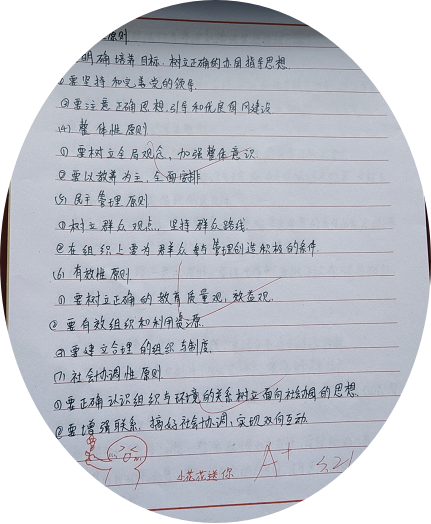 原则
明确培养目标,树立正确的办园指导思想
②要坚持和完善党的领导
③要注意正确思想引导和优良园风建设
(4)整体性原则
①要树立全局观念,加强整体意识
②要以教养为主,全面安排
(5)民主管理原则
①树立群众观点,坚持群众路线
②在组织上要为群众参与管理创造积极的条件
(6)有效性原则
①要树立正确的教育质量观,效益观.
②要有效组织和利用资源
③要建立合理的组织与制度.
(7)社会协调性原则
①要正确认识组织与环境的关系树立面向社会协调的思想
②要增强联系,搞好社会协调,实现双向互动
小花花送你
A+
5.21